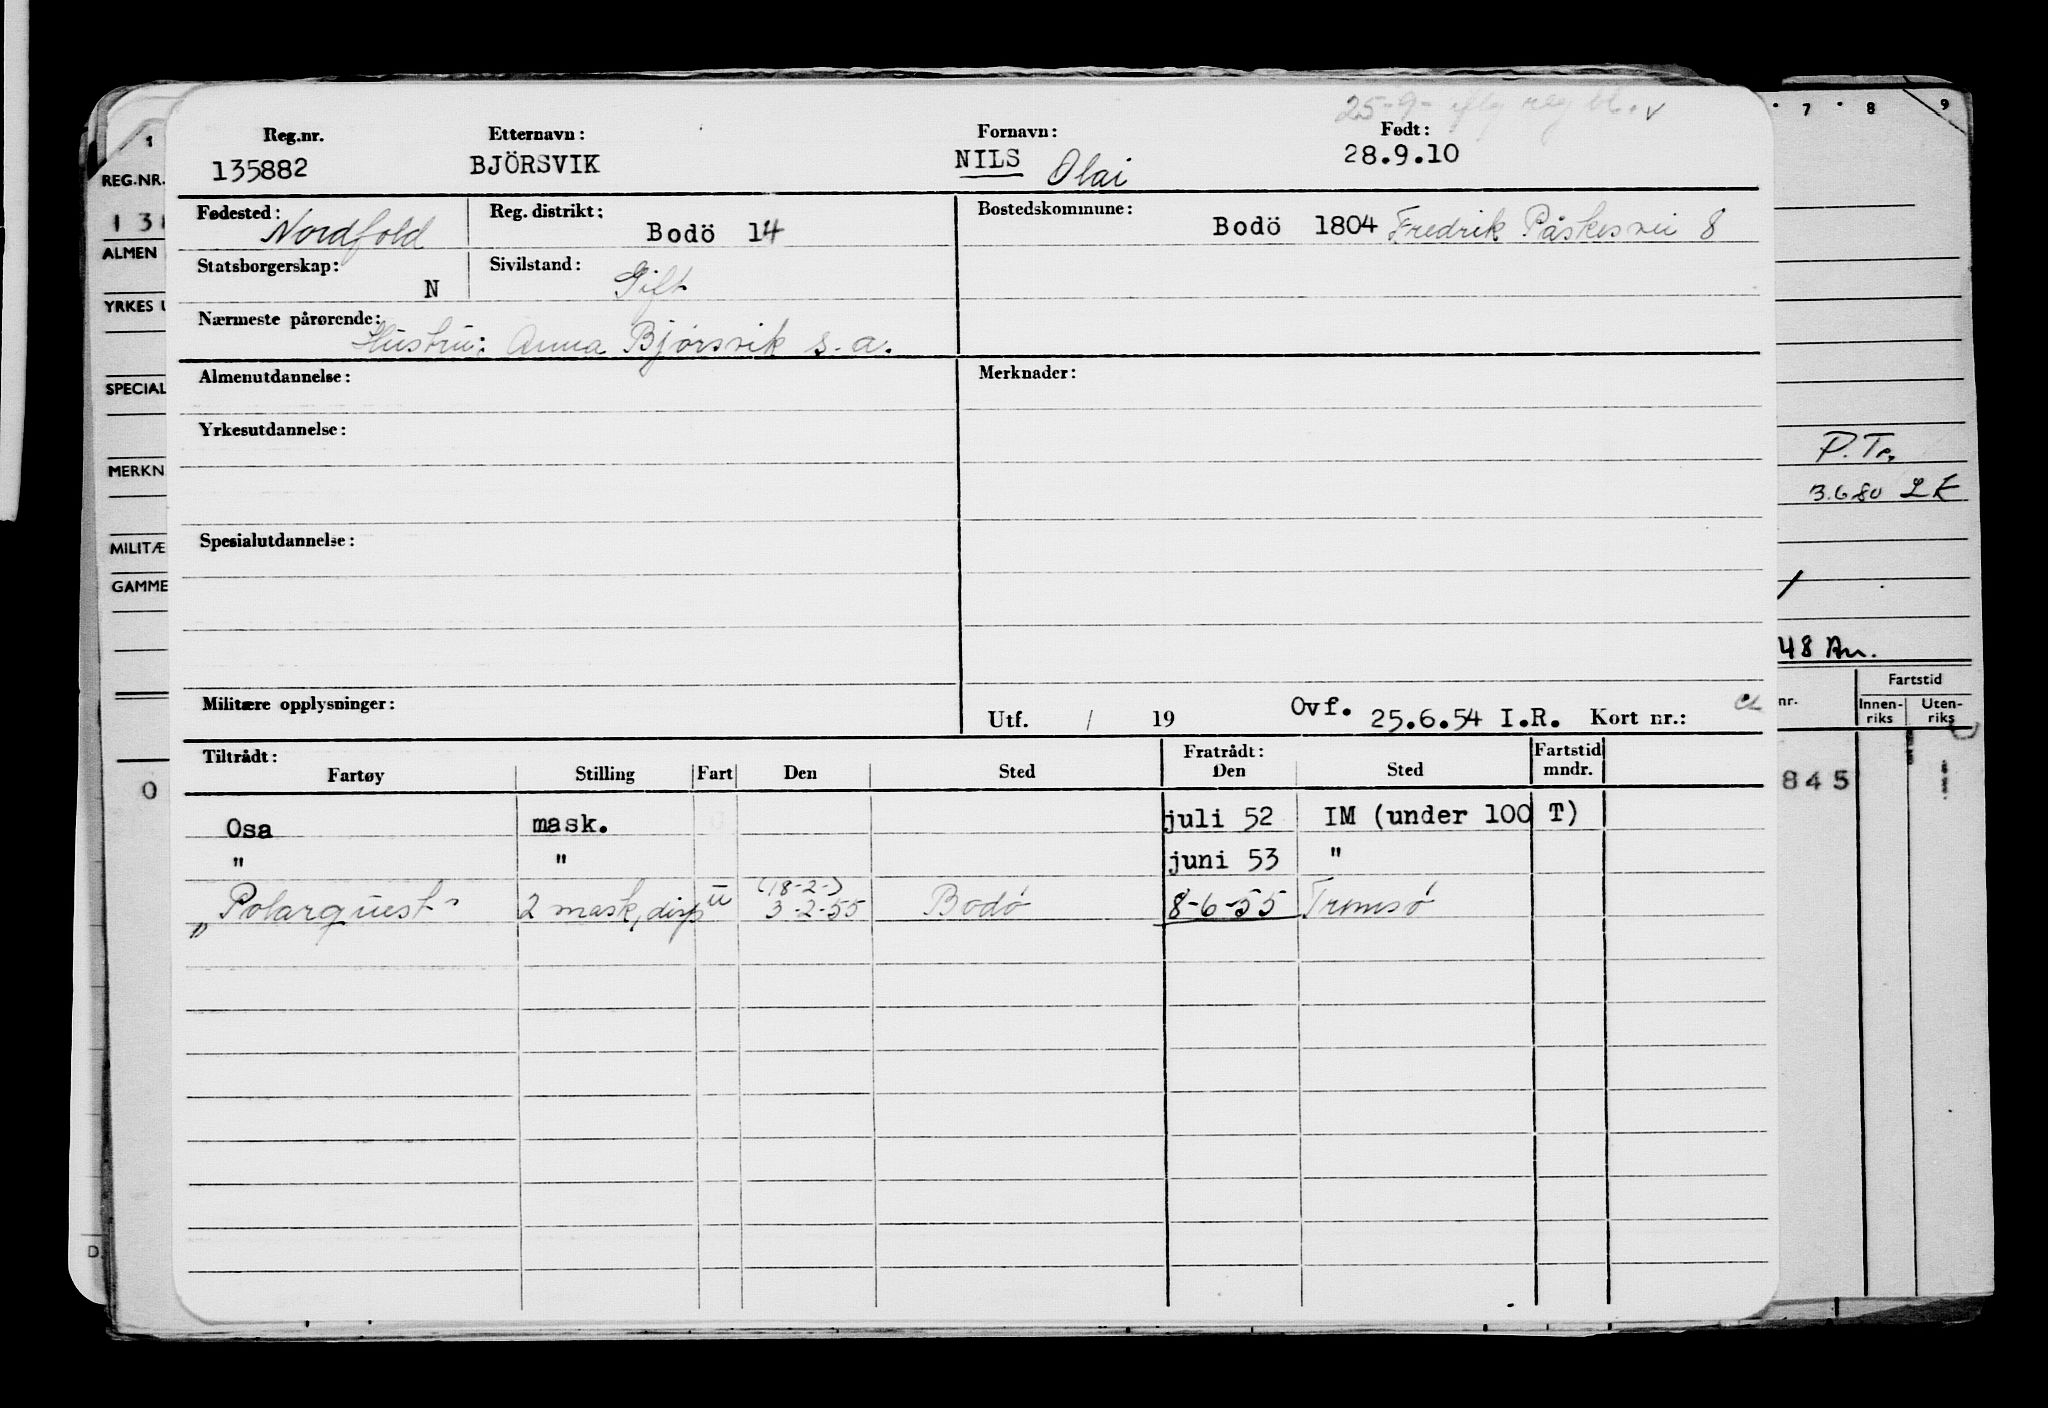 25-9- iflg reg bl. v
Reg.nr. Etternavn: Fornavn: Født:
135882 BJÖRSVIK NILS Olai 28.9.10
Fødested: Nordfold Reg. distrikt: Bodö 14 Bostedskommune: Bodö 1804 Fredrik Påskesvei 8
Statsborgerskap: N Sivilstand: Gift
Nærmeste pårørende: Hustru: Anna Bjørsvik s.a.
Almenutdannelse: Merknader:
Yrkesutdannelse:
Spesialutdannelse:
Militære opplysninger: Utf. / 19 Ovf. 25.6.54 I.R. Kort nr.:
Tiltrådt: Fratrådt: Fartstid
Fartøy Stilling Fart Den Sted Den Sted mndr.
Osa mask. juli 52 IM (under 100 T)
" " juni 53 "
(18-2-)
"Polarquest" 2 mask, disp U 3-2-55 Bodø 8-6-55 Tromsø
1
REG.NR.
1 3
ALMEN
YRKES U
SPECIAL
MERKN
MILITÆ
GAMME
0
D.
7 8 9
P.Tr.
3.6.80 LK
/
48 An.
nr. Fartstid
Innen-riks Uten-riks
845